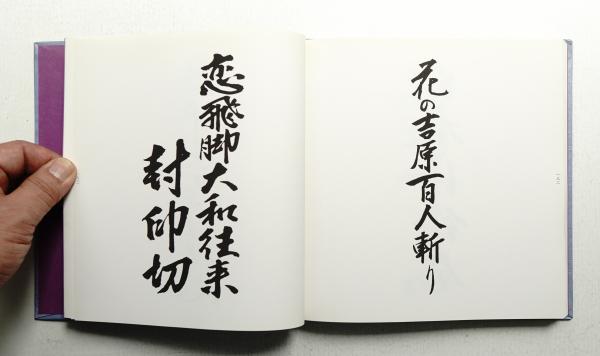 花の吉原百人斬り
恋飛脚大和往来
封印切